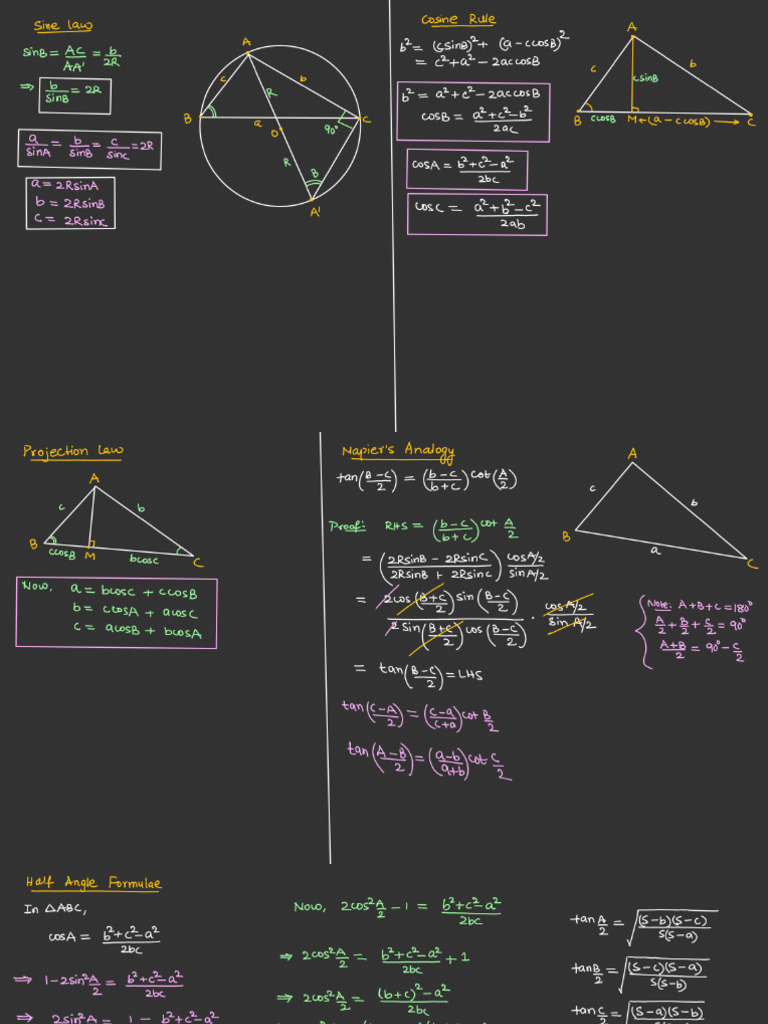 Sine law
sinB = AC/AA' = b/2R
⇒ b/sinB = 2R
a/sinA = b/sinB = c/sinC = 2R
a = 2RsinA
b = 2RsinB
c = 2RsinC
A
c
b
R
B
a
O
90°
C
R
B
A'
Cosine Rule
b² = (csinB)² + (a-ccosB)²
= c²+a²-2accosB
b² = a²+c²-2accosB
cosB = (a²+c²-b²)/2ac
cosA = (b²+c²-a²)/2bc
cosC = (a²+b²-c²)/2ab
A
c
b
csinB
B
ccosB
M←(a-ccosB)→C
Projection Law
A
c
b
B
ccosB
M
bcosC
C
Now, a = bcosC + ccosB
b = ccosA + acosC
c = acosB + bcosA
Napier's Analogy
tan((B-C)/2) = ((b-c)/(b+c))cot(A/2)
Proof: RHS = ((b-c)/(b+c))cot A/2
= ((2RsinB - 2RsinC)/(2RsinB + 2RsinC)) cosA/2/sinA/2
= 2cos((B+C)/2)sin((B-C)/2)/2sin((B+C)/2)cos((B-C)/2) · cosA/2/sinA/2
= tan((B-C)/2) = LHS
tan((C-A)/2) = ((c-a)/(c+a))cot B/2
tan((A-B)/2) = ((a-b)/(a+b))cot C/2
A
c
b
B
a
C
Note: A+B+C = 180°
A/2 + B/2 + C/2 = 90°
(A+B)/2 = 90° - C/2
Half Angle Formulae
In △ABC,
cosA = (b²+c²-a²)/2bc
⇒ 1-2sin²A/2 = (b²+c²-a²)/2bc
⇒ 2sin²A = 1 - b²+c²-a²
Now, 2cos²A/2 - 1 = (b²+c²-a²)/2bc
⇒ 2cos²A/2 = (b²+c²-a²)/2bc + 1
⇒ 2cos²A/2 = ((b+c)²-a²)/2bc
tan A/2 = √((S-b)(S-c)/S(S-a))
tan B/2 = √((S-c)(S-a)/S(S-b))
tan C/2 = √(S-a)(S-b)